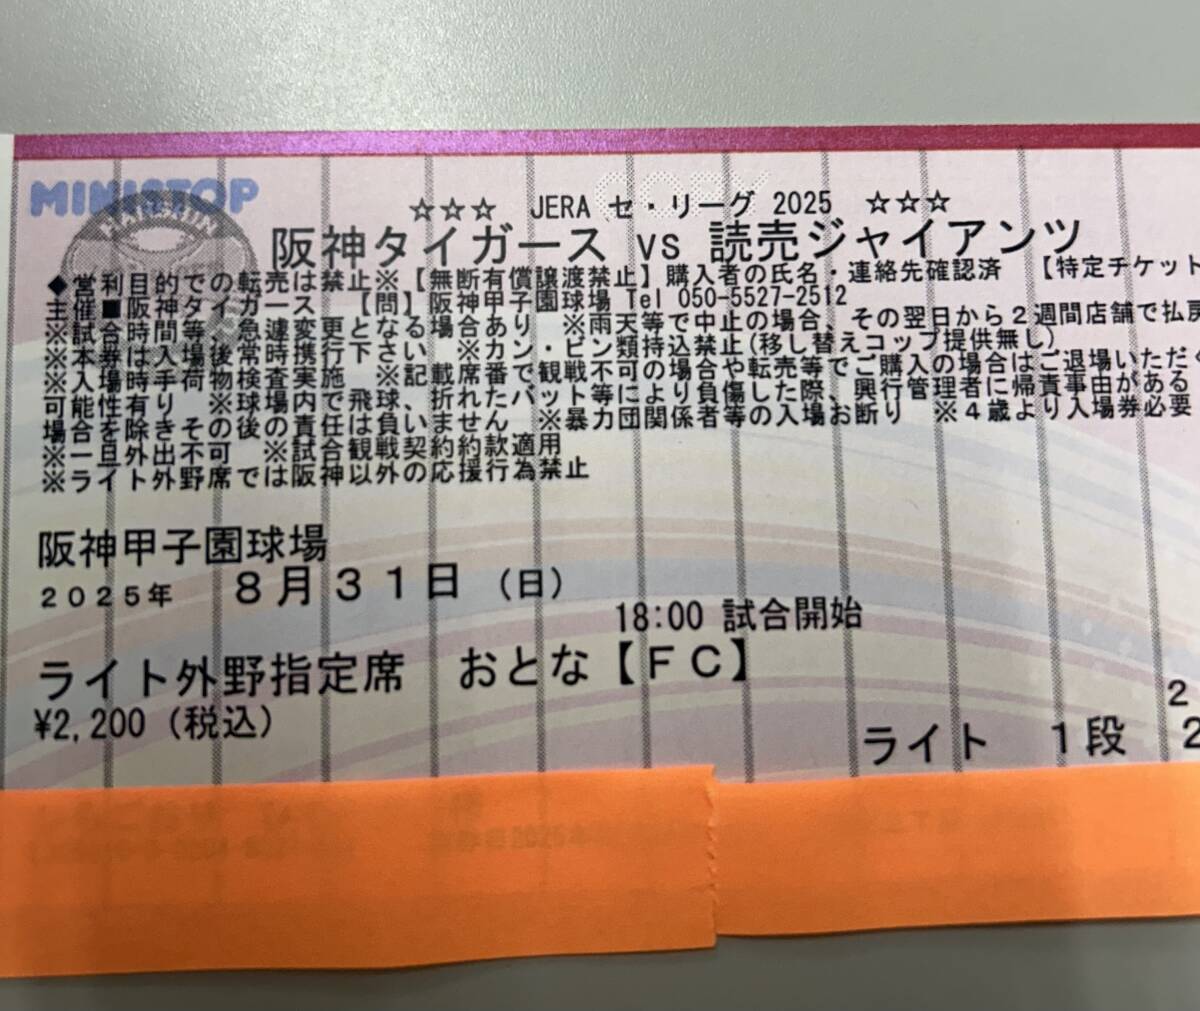 MINISTOP
COPY
☆☆☆ JERA セ・リーグ 2025 ☆☆☆
阪神タイガース vs 読売ジャイアンツ
◆営利目的での転売は禁止※【無断有償譲渡禁止】購入者の氏名・連絡先確認済 【特定チケット
主催■阪神タイガース 【問】阪神甲子園球場 Tel 050-5527-2512
※試合時間等、急遽変更となる場合あり ※雨天等で中止の場合、その翌日から２週間店舗で払戻
※本券は入場後常時携行下さい ※カン・ビン類持込禁止(移し替えコップ提供無し)
※入場時手荷物検査実施 ※記載席番で観戦不可の場合や転売等でご購入の場合はご退場いただく
可能性有り ※球場内で飛球、折れたバット等により負傷した際、興行管理者に帰責事由がある
場合を除きその後の責任は負いません ※暴力団関係者等の入場お断り ※４歳より入場券必要
※一旦外出不可 ※試合観戦契約約款適用
※ライト外野席では阪神以外の応援行為禁止
阪神甲子園球場
２０２５年 ８月３１日 (日)
18:00 試合開始
ライト外野指定席 おとな【ＦＣ】
¥2,200(税込)
２
ライト １段 ２